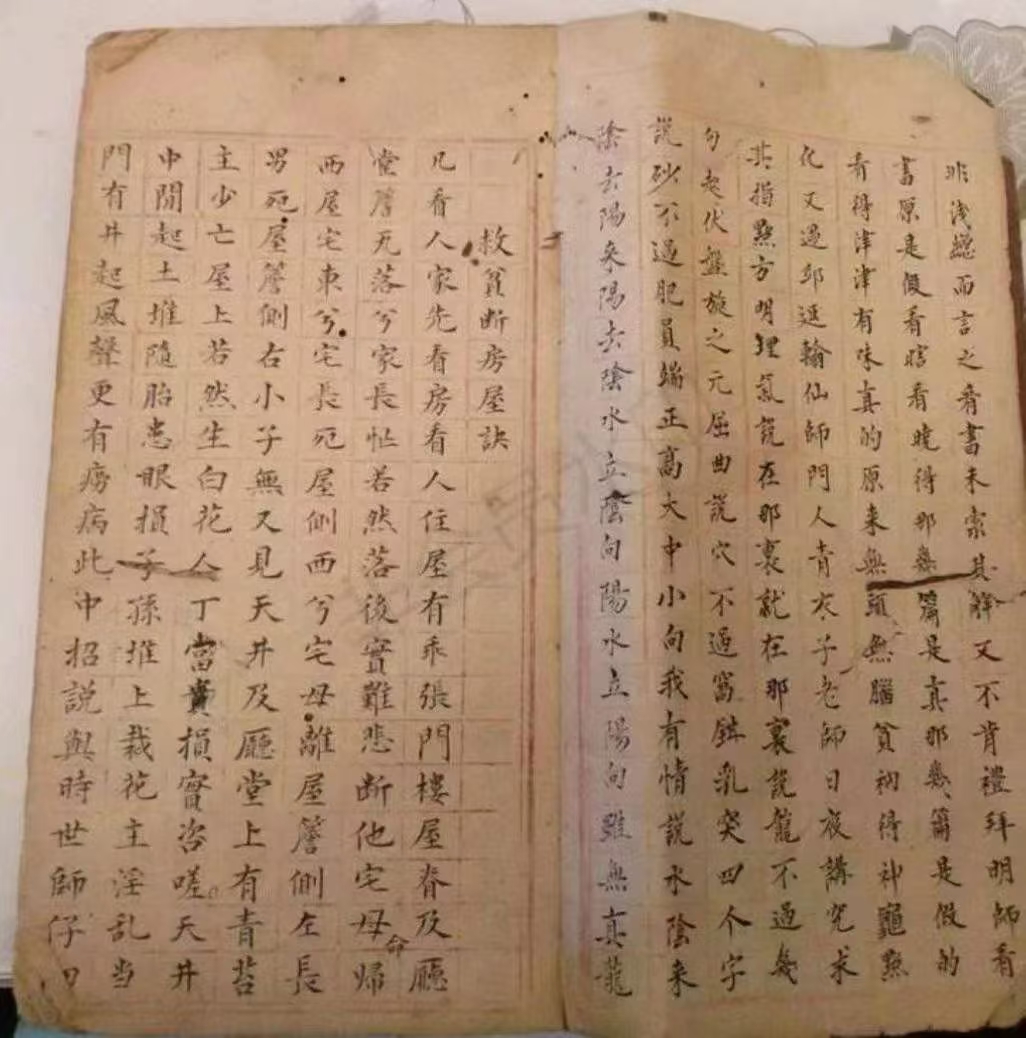 非浅總而言之看書未索其詳又不肯禮拜明師看
書原是假看瞎看曉得那幾篇是真那幾篇是假的
看得津津有味真的原来無頭無腦貧衲得神龜點
化又遇邱延翰仙師門人青衣子老師日夜講究求
其指點方明理氣説在那裏就在那裏説龍不過幾
句起伏盤旋之元屈曲説穴不過窩鉗乳突四个字
説砂不過肥員端正高大中小向我有情説水陰来
陰去陽来陽去陰水立陰向陽水立陽向雖無真龍
救貧断房屋訣
凡看人家先看房看人住屋有乖張門樓屋脊及廳
堂簷瓦落兮家長忙若然落後實難悲断他宅母命歸
西屋宅東兮宅長死屋側西兮宅母離屋簷側左長
男死屋簷側右小子無又見天井及廳堂上有青苔
主少亡屋上若然生白花人丁當賣損實咨嗟天井
中間起土堆隨胎患眼損子孫堆上栽花主淫乱当
門有井起風聲更有癆病此中招説與時世師仔